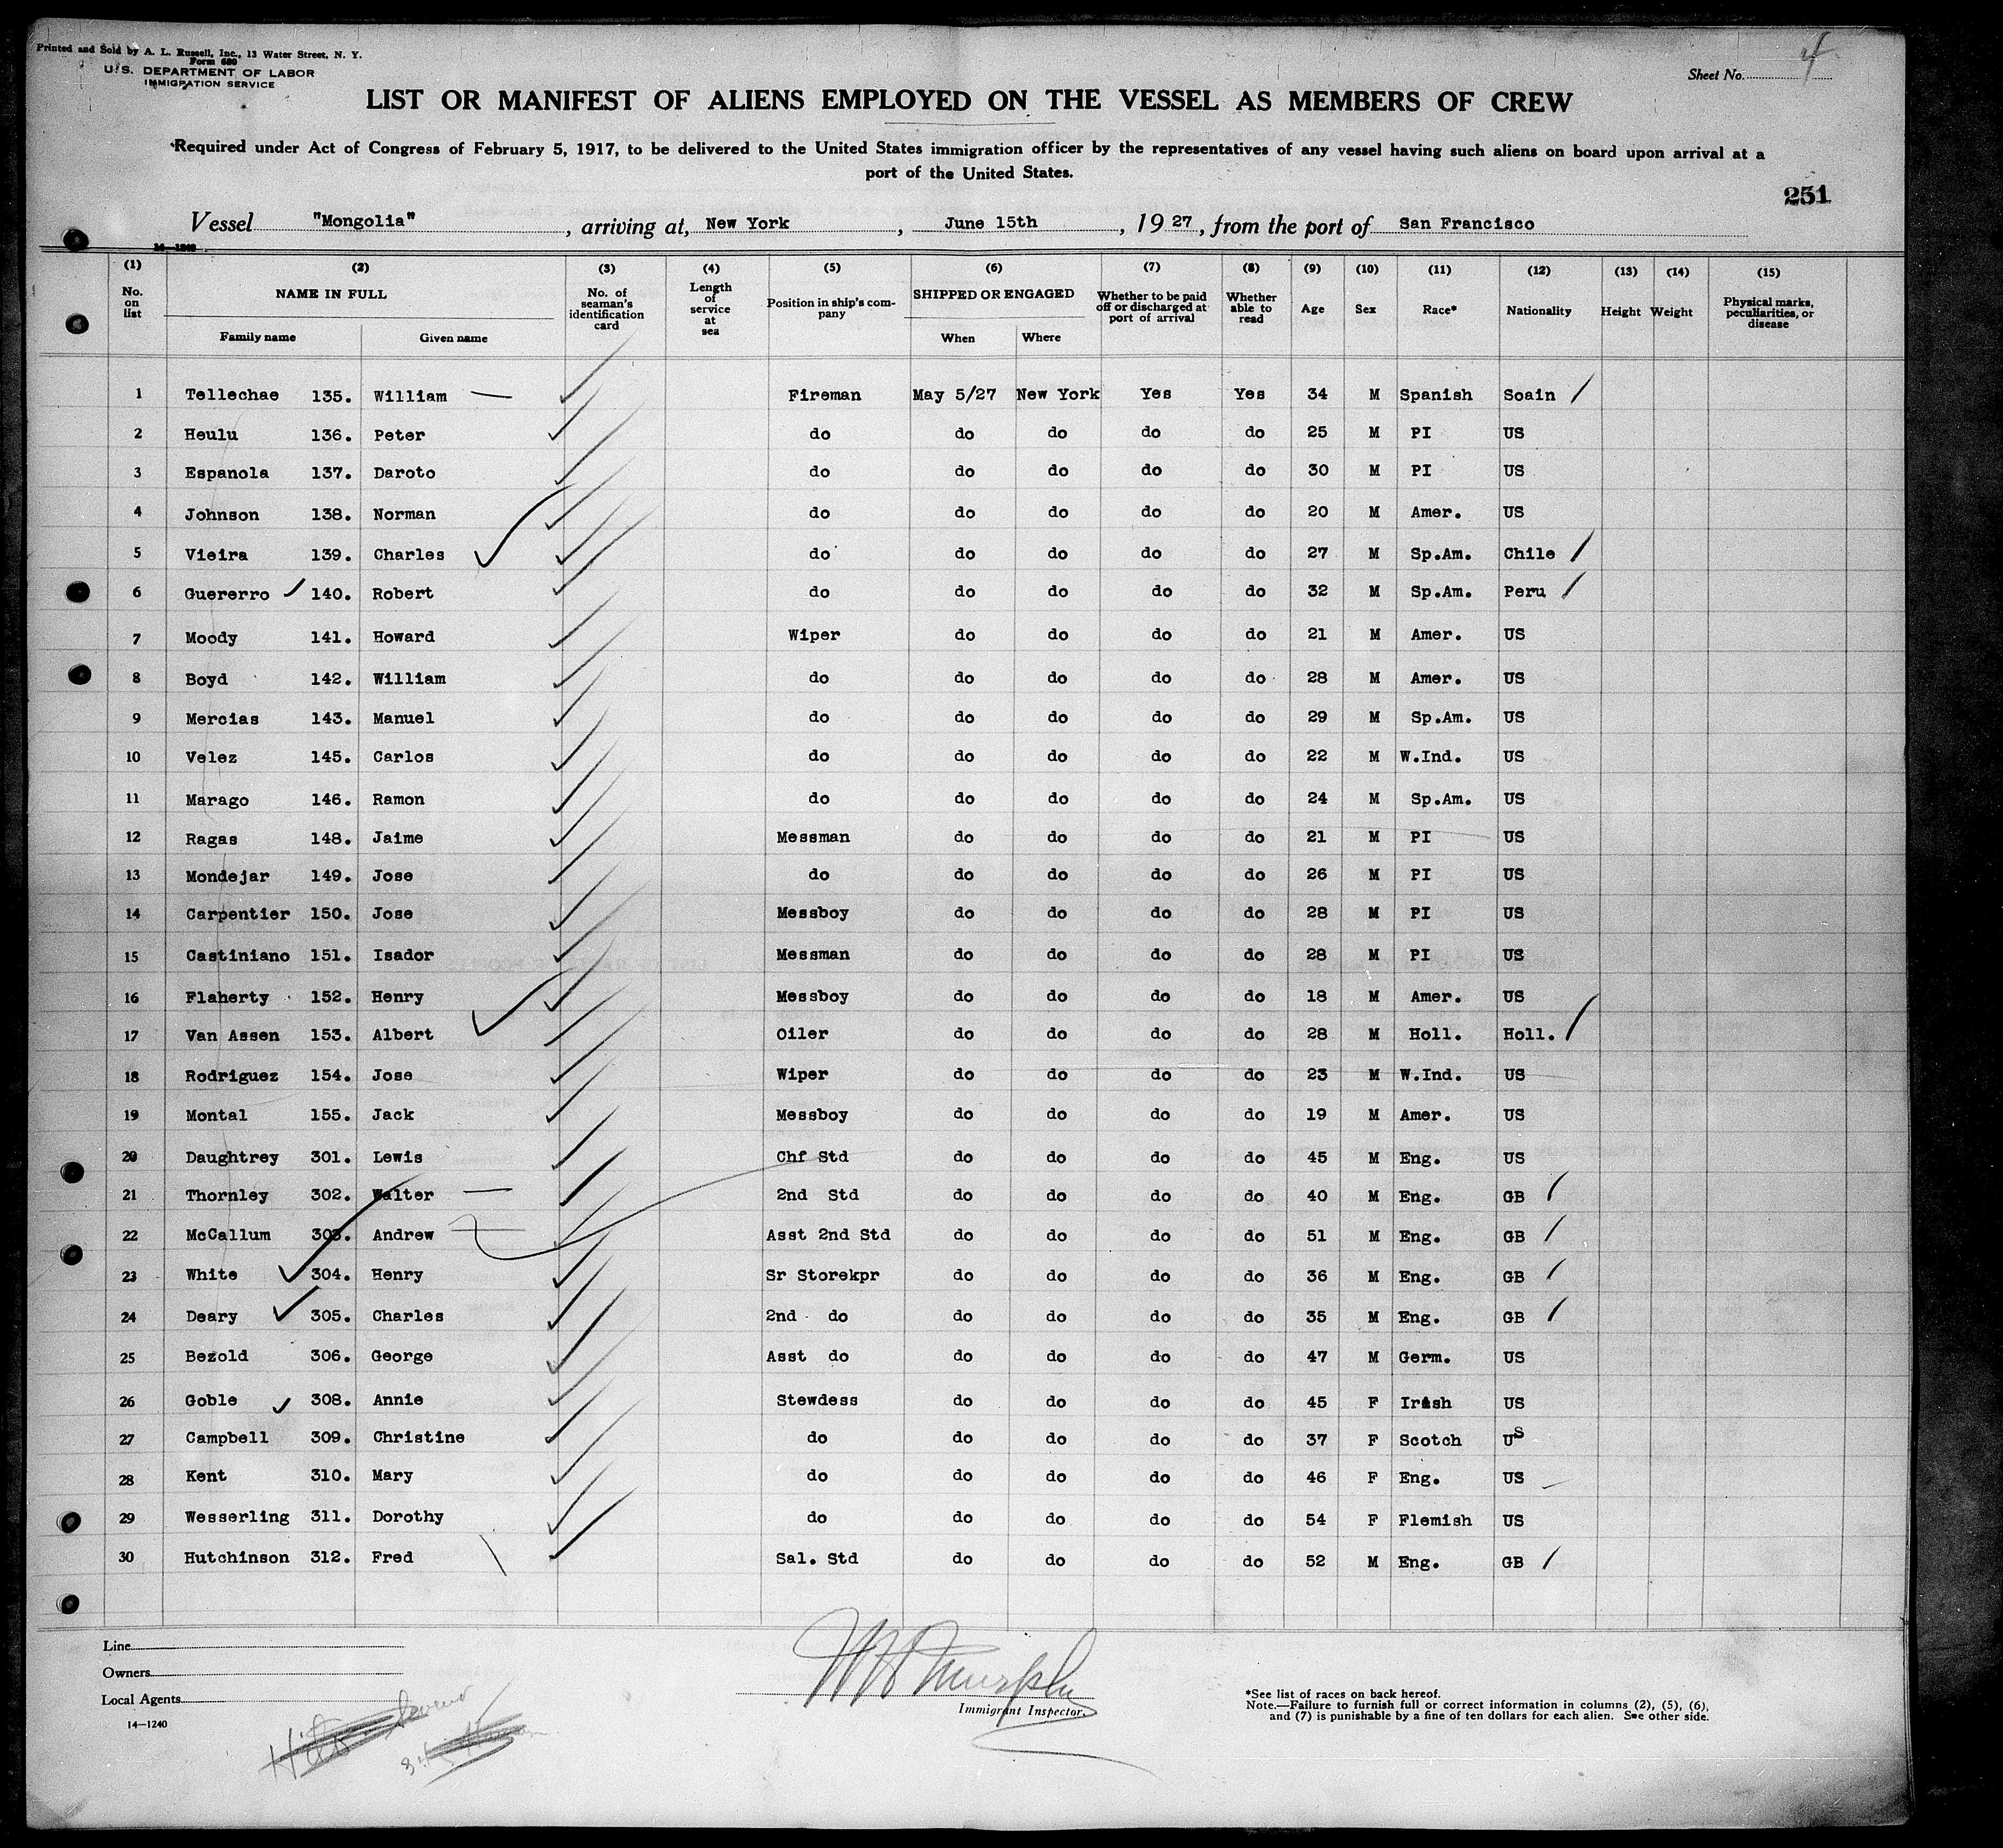 Printed and Sold by A. L. Russell, Inc., 13 Water Street, N. Y.
Form 680
U. S. DEPARTMENT OF LABOR
IMMIGRATION SERVICE
Sheet No. 4
LIST OR MANIFEST OF ALIENS EMPLOYED ON THE VESSEL AS MEMBERS OF CREW
Required under Act of Congress of February 5, 1917, to be delivered to the United States immigration officer by the representatives of any vessel having such aliens on board upon arrival at a
port of the United States.
251
Vessel "Mongolia", arriving at, New York, June 15th, 1927, from the port of San Francisco
14—1240
(1) (2) (3) (4) (5) (6) (7) (8) (9) (10) (11) (12) (13) (14) (15)
No. on list NAME IN FULL Family name Given name No. of seaman's identification card Length of service at sea Position in ship's company SHIPPED OR ENGAGED When Where Whether to be paid off or discharged at port of arrival Whether able to read Age Sex Race* Nationality Height Weight Physical marks, peculiarities, or disease
1 Tellechae 135. William Fireman May 5/27 New York Yes Yes 34 M Spanish Soain
2 Heulu 136. Peter do do do do do 25 M PI US
3 Espanola 137. Daroto do do do do do 30 M PI US
4 Johnson 138. Norman do do do do do 20 M Amer. US
5 Vieira 139. Charles do do do do do 27 M Sp.Am. Chile
6 Guererro 140. Robert do do do do do 32 M Sp.Am. Peru
7 Moody 141. Howard Wiper do do do do 21 M Amer. US
8 Boyd 142. William do do do do do 28 M Amer. US
9 Mercias 143. Manuel do do do do do 29 M Sp.Am. US
10 Velez 145. Carlos do do do do do 22 M W.Ind. US
11 Marago 146. Ramon do do do do do 24 M Sp.Am. US
12 Ragas 148. Jaime Messman do do do do 21 M PI US
13 Mondejar 149. Jose do do do do do 26 M PI US
14 Carpentier 150. Jose Messboy do do do do 28 M PI US
15 Castiniano 151. Isador Messman do do do do 28 M PI US
16 Flaherty 152. Henry Messboy do do do do 18 M Amer. US
17 Van Assen 153. Albert Oiler do do do do 28 M Holl. Holl.
18 Rodriguez 154. Jose Wiper do do do do 23 M W.Ind. US
19 Montal 155. Jack Messboy do do do do 19 M Amer. US
20 Daughtrey 301. Lewis Chf Std do do do do 45 M Eng. US
21 Thornley 302. Walter 2nd Std do do do do 40 M Eng. GB
22 McCallum 303. Andrew Asst 2nd Std do do do do 51 M Eng. GB
23 White 304. Henry Sr Storekpr do do do do 36 M Eng. GB
24 Deary 305. Charles 2nd do do do do do 35 M Eng. GB
25 Bezold 306. George Asst do do do do do 47 M Germ. US
26 Goble 308. Annie Stewdess do do do do 45 F Irish US
27 Campbell 309. Christine do do do do do 37 F Scotch US
28 Kent 310. Mary do do do do do 46 F Eng. US
29 Wesserling 311. Dorothy do do do do do 54 F Flemish US
30 Hutchinson 312. Fred Sal. Std do do do do 52 M Eng. GB
Line
Owners
Local Agents
14—1240
Murphy
Immigrant Inspector.
*See list of races on back hereof.
Note.—Failure to furnish full or correct information in columns (2), (5), (6),
and (7) is punishable by a fine of ten dollars for each alien. See other side.